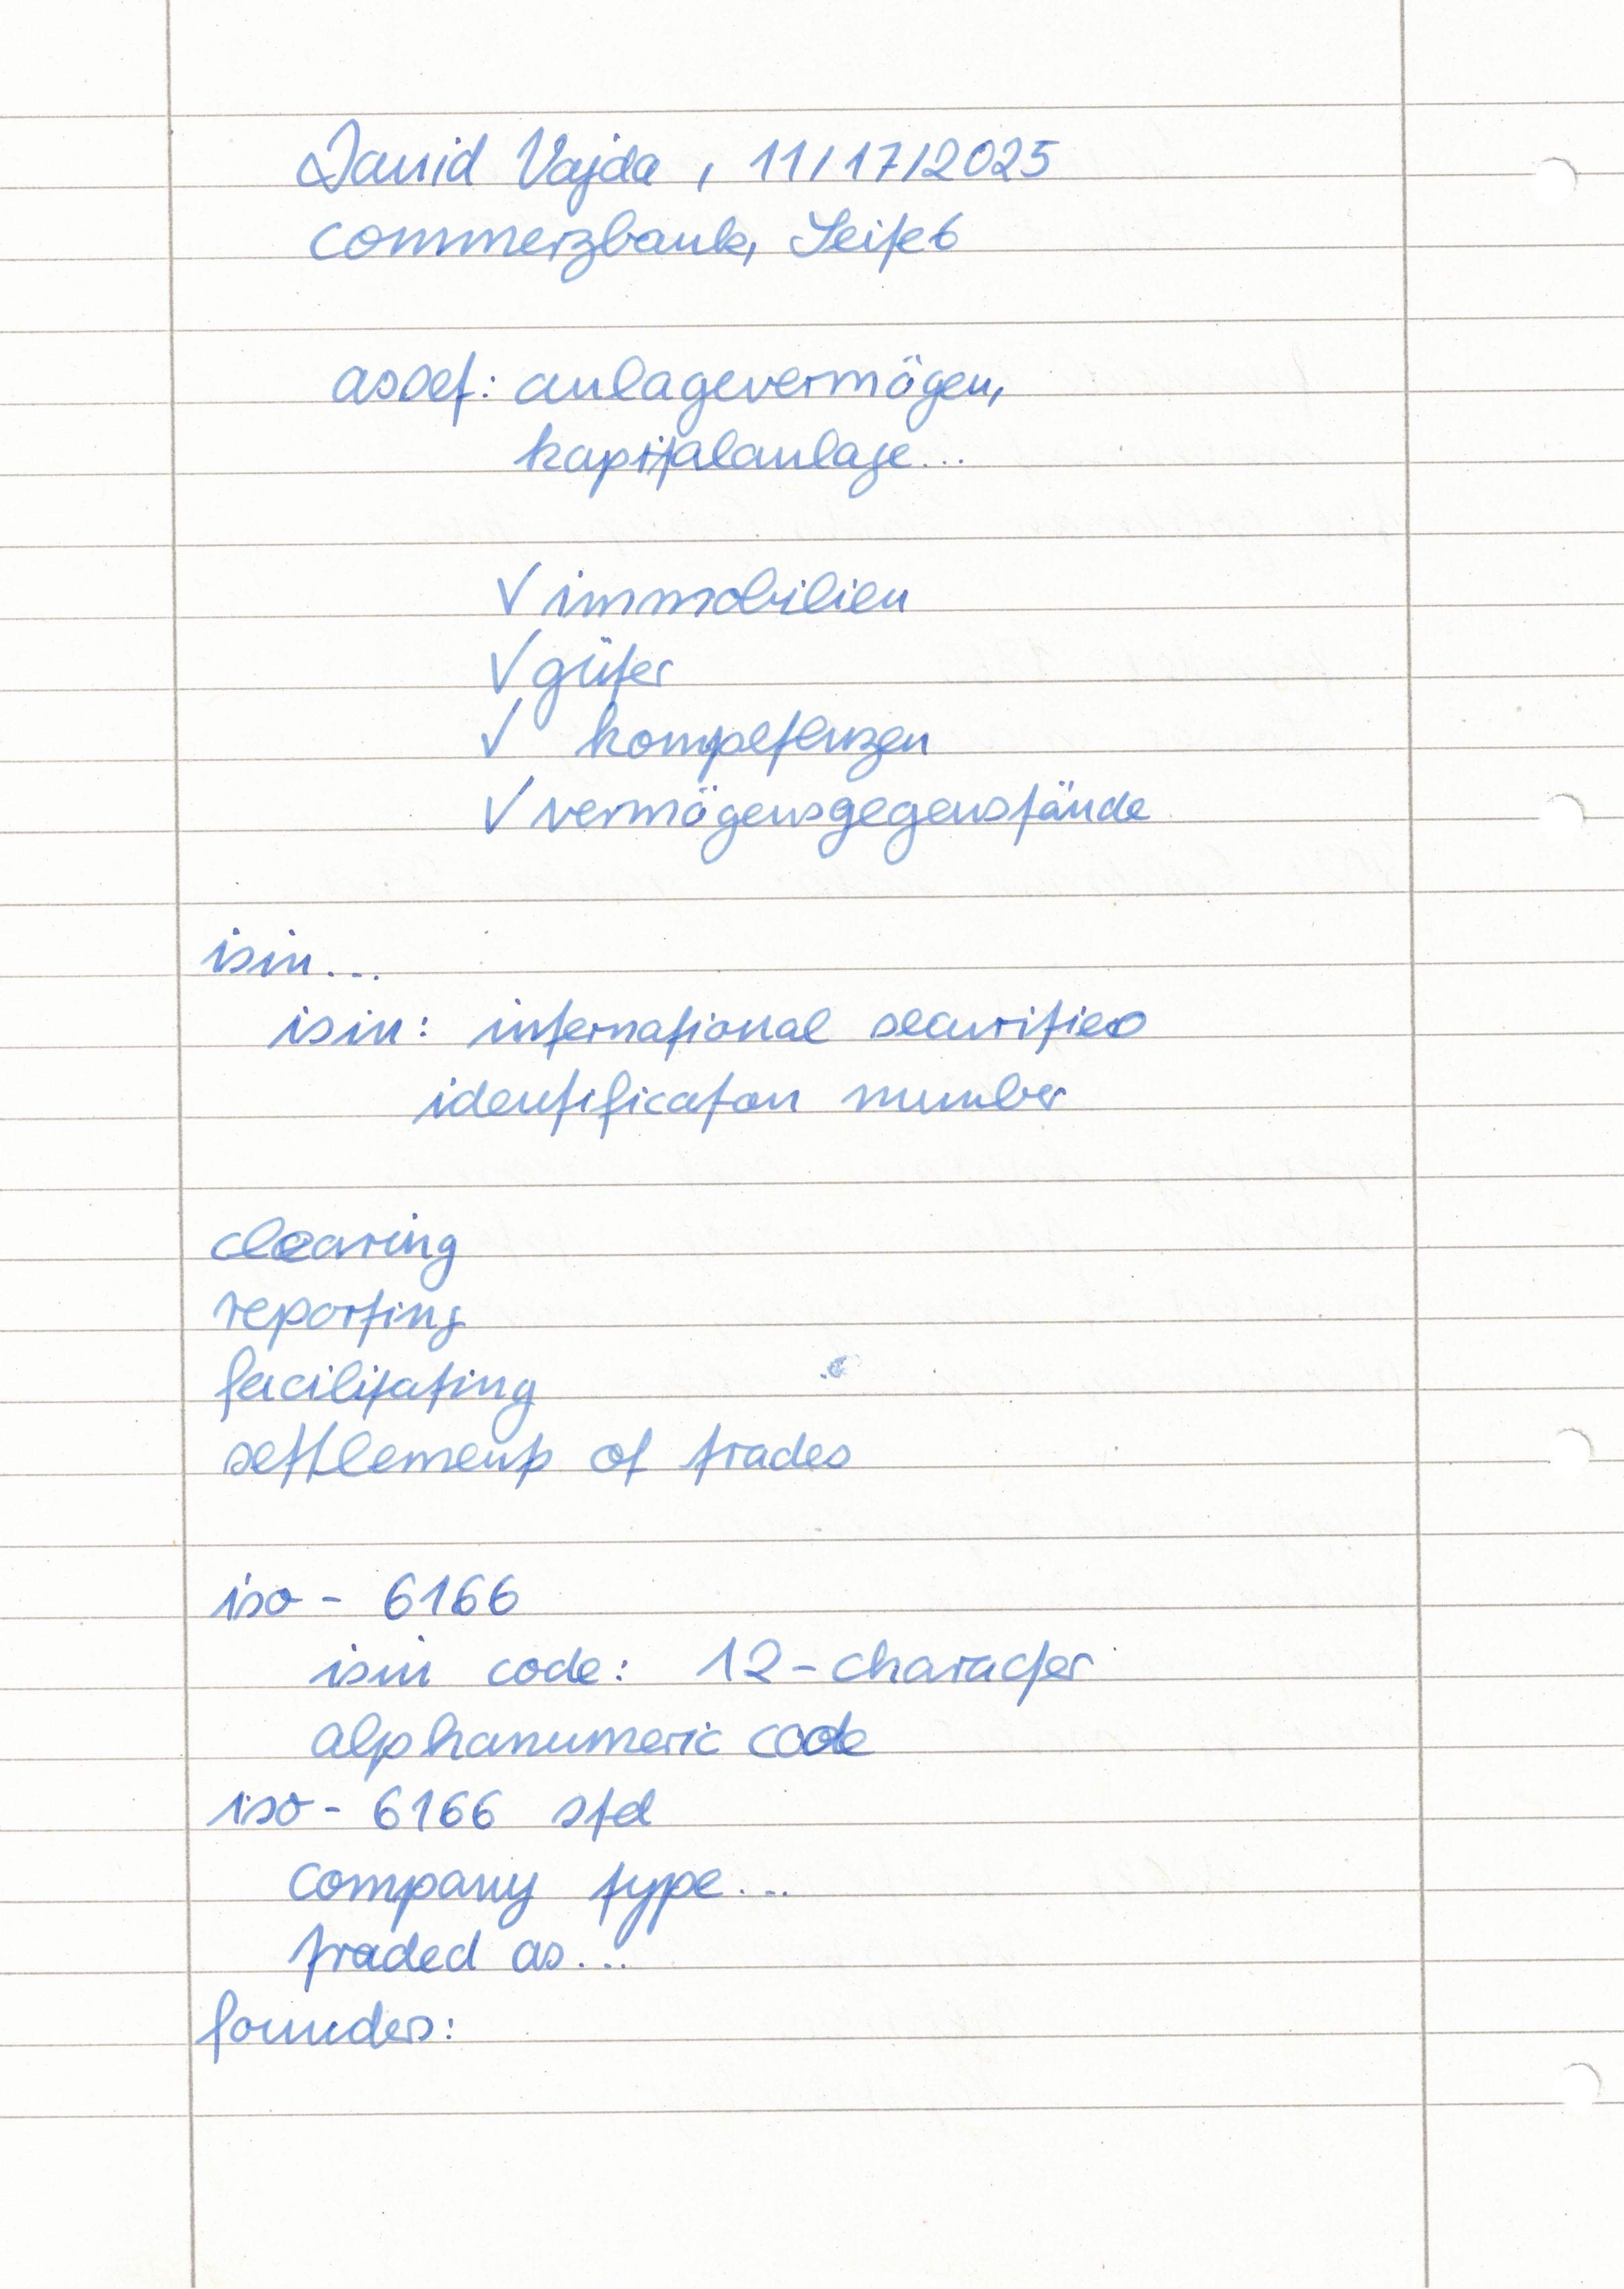 David Vajda, 11/17/2025
commerzbank, Seite 6
asset: anlagevermögen,
kapitalanlage...
√ immobilien
√ güter
√ kompetenzen
√ vermögensgegenstände
isin...
isin: international securities
identificaton number
clearing
reporting
facilitating
settlement of trades
iso - 6166
isin code: 12-character
alphanumeric code
iso - 6166 std
company type...
traded as...
founders: